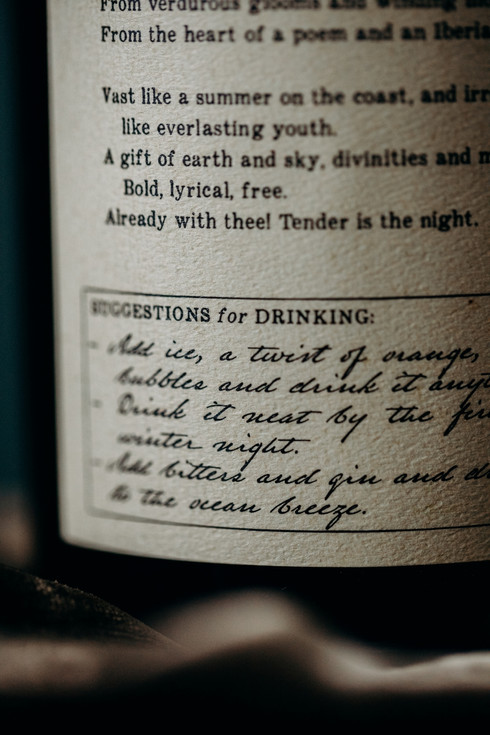 From verdurous glooms and winding
From the heart of a poem and an Iberia
Vast like a summer on the coast, and irr
like everlasting youth.
A gift of earth and sky, divinities and m
Bold, lyrical, free.
Already with thee! Tender is the night.
SUGGESTIONS for DRINKING:
- Add ice, a twist of orange,
bubbles and drink it anyt
- Drink it neat by the fir
winter night.
- Add bitters and gin and d
to the ocean breeze.